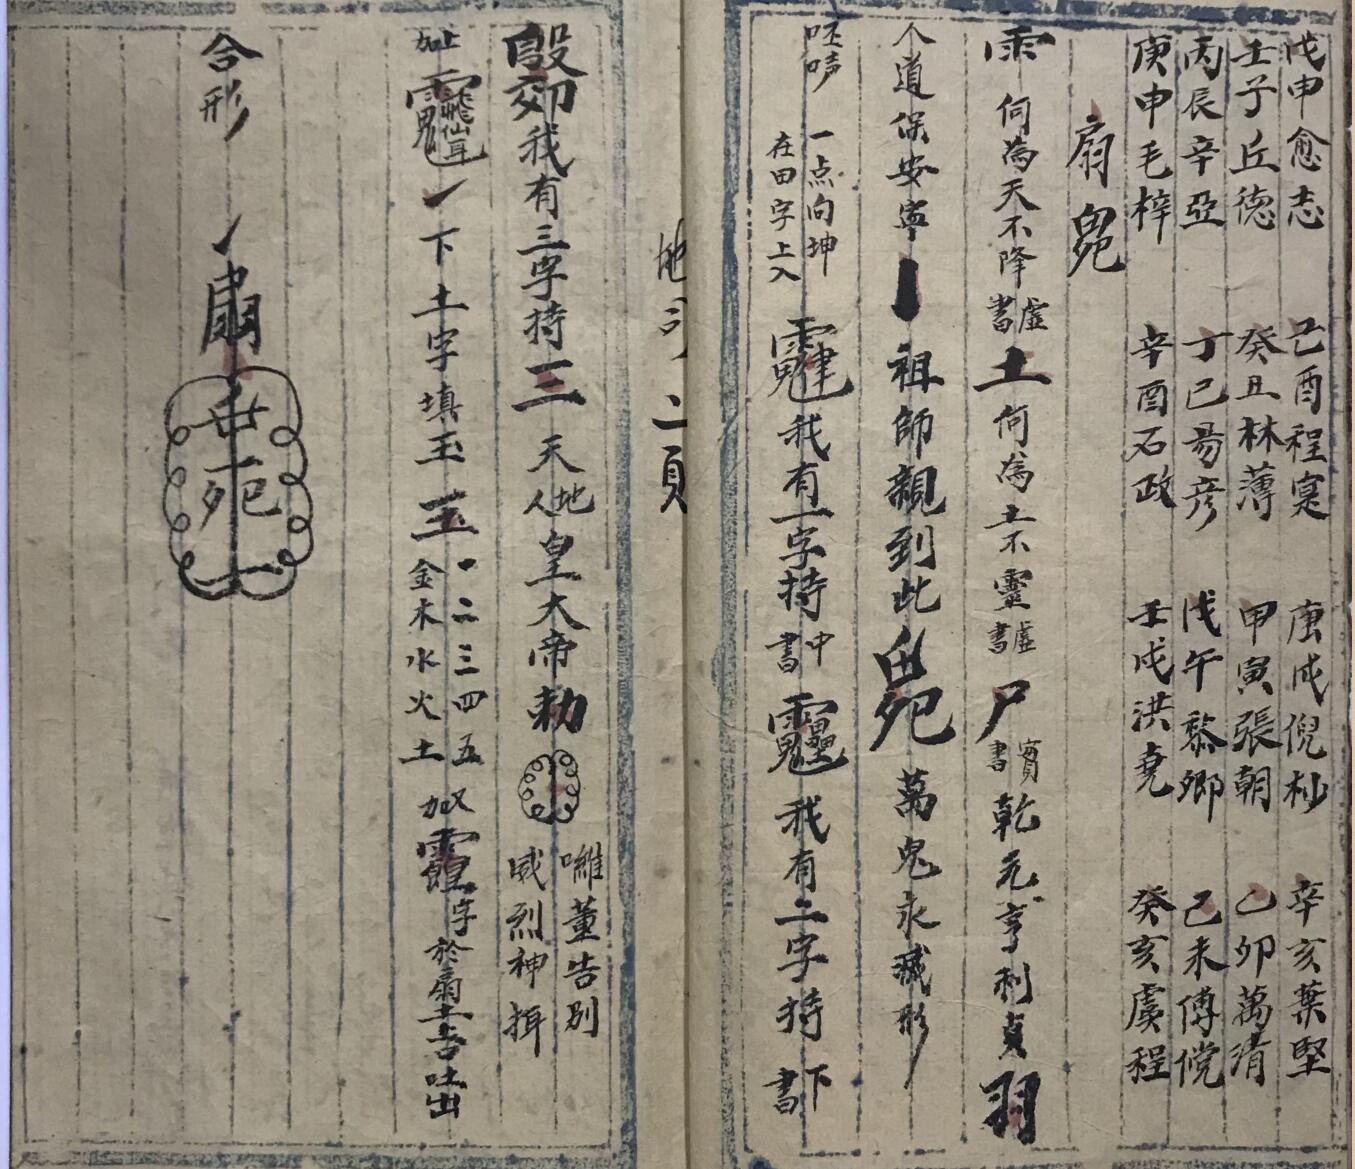 戊申愈志　己酉程寔　庚戌倪杪　辛亥葉堅
壬子丘德　癸丑林薄　甲寅張朝　乙卯萬清
丙辰辛亞　丁巳易彦　戊午黎卿　己未傅傥
庚申毛梓　辛酉石政　壬戌洪堯　癸亥虞程
扇
雨　何為天不降　虛書　土　何為土不靈　虛書　尸　實書　乾元亨利貞　羽
人道保安寧　祖師親到此　萬鬼永滅形
一点向坤在田字上入　我有一字持　中書　我有二字持　下書
地司　二頁
我有三字持　三　天地人皇大帝勅　董告別威烈神
加　下土字填玉　玉　一二三四五　金木水火土　加　字於　吐出
合形